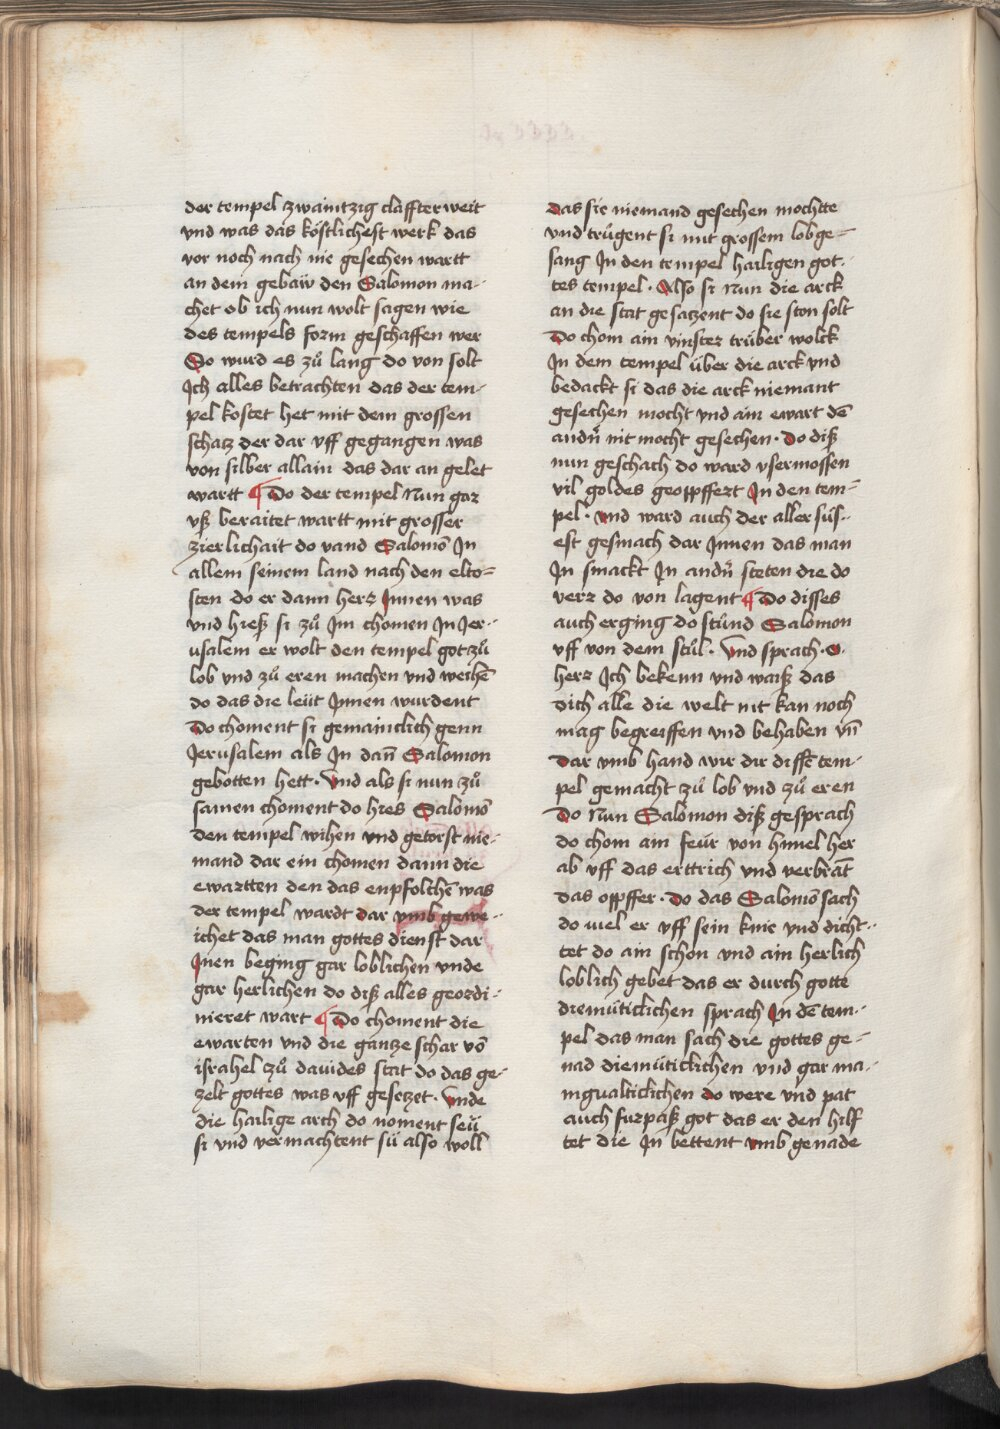 der tempel zwaintzig claffter weit
vnd was das köstlichest werk das
vor noch nach nie gesechen wartt
an dem gebäw den Salomon ma-
chet ob ich nun wolt sagen wie
des tempels form geschaffen wer
So wurd es zů lang do von solt
Ich alles betrachten das der tem-
pel kostet het mit dem grossen
schatz der dar vff gegangen was
von silber allain das dar an gelet
wartt ¶ Do der tempel Nun gar
vß beraitet wartt mit grosser
zierlichait do vand Salomō In
allem seinem land nach den elto-
sten do er dann herr Innen was
vnd hieß si zů Im chomen In Jer-
usalem er wolt den tempel got zů
lob vnd zů eren machen vnd weihē
do das die leüt Innen wurdent
Do choment si gemainclich genn
Jerusalem als In dañ Salomon
gebotten hett · Vnd als si nun zů
samen choment do hies Salomō
den tempel wihen vnd getorst nie-
mand dar ein chomen dann die
ewartten den das enpfolchē was
der tempel wardt dar vmb gewe-
ichet das man gottes dienst dar
Inen beging gar loblichen vnde
gar herlichen do diß alles geordi-
nieret wart ¶ Do choment die
ewarten vnd die gantze schar vō
israhel zů dauides stat do das ge-
zelt gottes was vff gesetzet · Vnde
die hailige arch do noment seü
si vnd vermachtent sü also woll
das sie niemand gesechen mochtte
vnd trůgent si mit grossem lobge-
sang In den tempel hailigen got-
tes tempel · Also si Nun die arck
an die stat gesatzent do sie ston solt
Do chom ain vinster trüber wolck
In dem tempel über die arck vnd
bedackt si das die arck niemant
gesechen mocht vnd ain ewart dē
andñ nit mocht gesechen · do diß
nun geschach do ward vsermossen
vil goldes geoppffert In den tem-
pel · vnd ward auch der aller süs-
est gesmach dar Innen das man
In smackt In andñ steten die do
verr do von lagent ¶ Do disses
auch erging do stůnd Salomon
vff von dem stůl · Vnd sprach · O ·
herr Ich bekenn vnd waiß das
dich alle die welt nit kan noch
mag begreiffen vnd behaben vñ
Dar vmb hand wir dir dissē tem-
pel gemacht zů lob vnd zů eren
Do Nun Salomon diß gesprach
do chom ain feür von himel her
ab vff das erttrich vnd verbrāt
das opffer · do das Salomō sach
do viel er vff sein knie vnd dicht-
tet do ain schon vnd ain herlich
loblich gebet das er durch gotte
diemüticklichen sprach In dē tem-
pel das man sach die gottes ge-
nad diemüticklichen vnd gar ma-
ingualticklichen do were vnd pat
auch furpaß got das er den hilf
tet die In bettent vmb genade